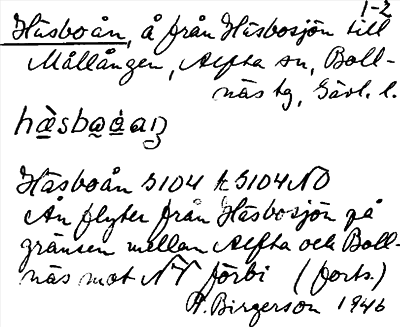 1-2
Häsboån, å från Häsbosjön till
Mållången, Alfta sn, Boll-
näs tg, Gävl. l.
Häsboån 5104 t. 5104 NO
Ån flyter från Häsbosjön på
gränsen mellan Alfta och Boll-
näs mot NV förbi (forts.)
A. Birgerson 1946